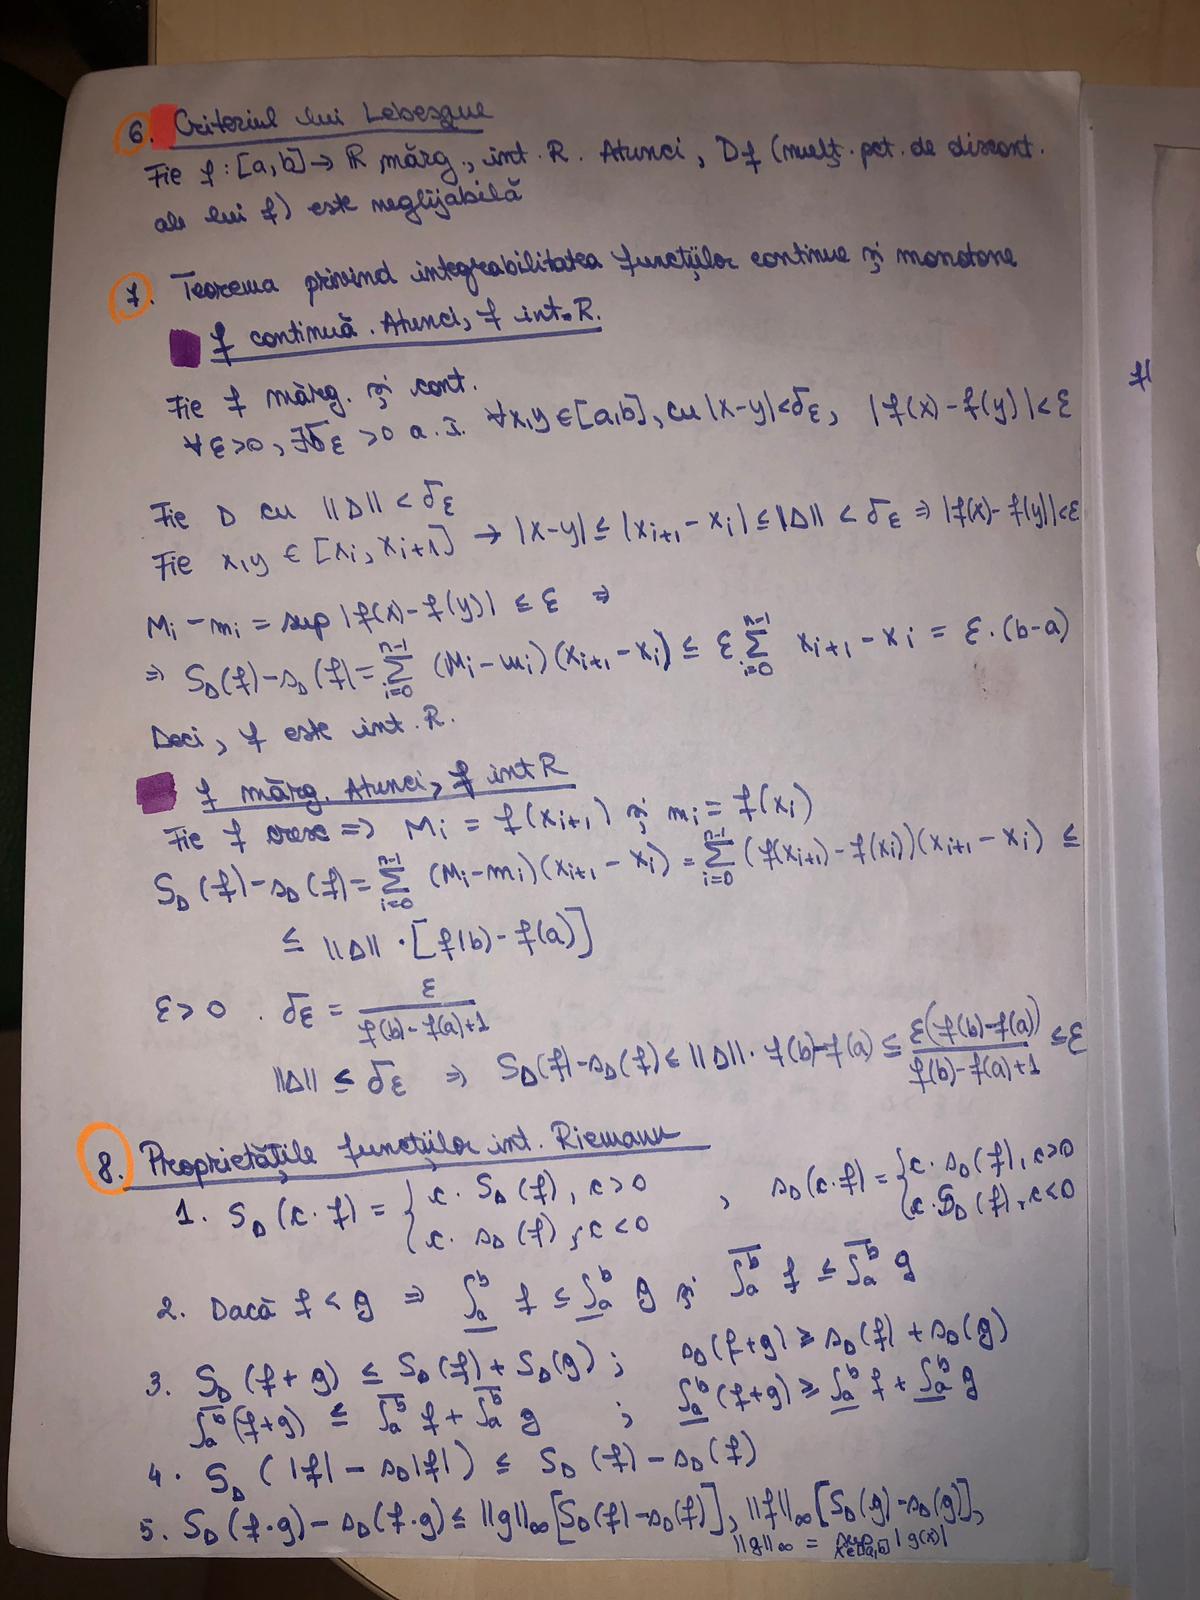 6. Criteriul lui Lebesgue
Fie f : [a,b] → R mărg., int. R. Atunci, Df (mulț. pct. de discont.
ale lui f) este neglijabilă
7. Teorema privind integrabilitatea funcțiilor continue și monotone
f continuă. Atunci, f int. R.
Fie f mărg. și cont.
∀ε>0, ∃δε >0 a.î. ∀x,y∈[a,b], cu |x-y|<δε, |f(x)-f(y)|<ε
Fie Δ cu ||Δ|| < δε
Fie x,y ∈ [xi, xi+1] → |x-y| ≤ |xi+1 - xi| ≤ ||Δ|| < δε ⇒ |f(x)- f(y)|<ε
Mi - mi = sup |f(x)-f(y)| ≤ ε ⇒
⇒ SΔ(f)-sΔ(f)=∑_{i=0}^{n-1} (Mi-mi)(xi+1-xi) ≤ ε ∑_{i=0}^{n-1} xi+1 - xi = ε·(b-a)
Deci, f este int. R.
f mărg. Atunci, f int R
Fie f cresc ⇒ Mi = f(xi+1) și mi = f(xi)
SΔ(f)-sΔ(f)=∑_{i=0}^{n-1} (Mi-mi)(xi+1-xi)=∑_{i=0}^{n-1} (f(xi+1)-f(xi))(xi+1-xi) ≤
≤ ||Δ|| · [f(b)-f(a)]
ε>0. δε = ε/(f(b)-f(a)+1)
||Δ|| ≤ δε ⇒ SΔ(f)-sΔ(f) ≤ ||Δ||· f(b)-f(a) ≤ ε(f(b)-f(a))/(f(b)-f(a)+1) ≤ε
8. Proprietățile funcțiilor int. Riemann
1. SΔ(c·f) = { c· SΔ(f), c>0 , sΔ(c·f) = { c· sΔ(f), c>0
c· sΔ(f), c<0 c·SΔ(f), c<0
2. Dacă f<g ⇒ ∫̲_a^b f ≤ ∫̲_a^b g și ∫̅_a^b f ≤ ∫̅_a^b g
3. SΔ(f+g) ≤ SΔ(f)+SΔ(g); sΔ(f+g) ≥ sΔ(f) + sΔ(g)
∫̅_a^b (f+g) ≤ ∫̅_a^b f + ∫̅_a^b g ; ∫̲_a^b (f+g) ≥ ∫̲_a^b f + ∫̲_a^b g
4. SΔ (|f| - sΔ|f|) ≤ SΔ(f)-sΔ(f)
5. SΔ(f·g)-sΔ(f·g) ≤ ||g||∞ [SΔ(f)-sΔ(f)], ||f||∞ [SΔ(g)-sΔ(g)],
||g||∞ = sup_{x∈[a,b]} |g(x)|